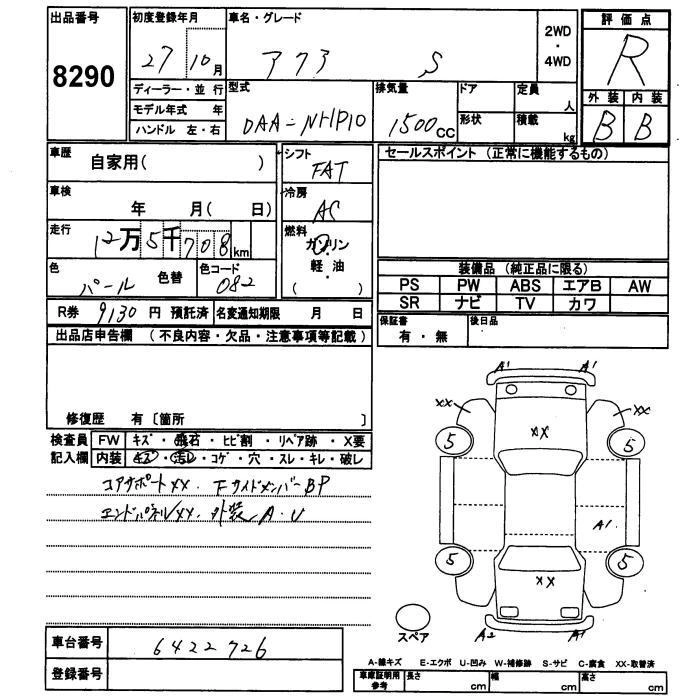 出品番号 初度登録年月 車名・グレード 評価点
8290 27 10月 アクア S 2WD・4WD R
ディーラー・並行 型式 排気量 ドア 定員 人 外装 内装
モデル年式 年 DAA-NHP10 1500cc B B
ハンドル 左・右 形状 積載 kg
車歴 自家用( ) シフト FAT セールスポイント (正常に機能するもの)
車検 年 月( 日) 冷房 AC
走行 12万5千708km 燃料 ガソリン 軽油 ( )
色 パール 色替 色コード 082
装備品 (純正品に限る)
PS PW ABS エアB AW
SR ナビ TV カワ
R券 9130 円 預託済 名変通知期限 月 日
保証書 有・無 後日品
出品店申告欄 (不良内容・欠品・注意事項等記載)
修復歴 有 [箇所 ]
検査員 FW キズ・飛石・ヒビ割・リペア跡・X要
記入欄 内装 キズ・汚レ・コゲ・穴・スレ・キレ・破レ
コアサポートXX. FサイドメンバーBP
エンドパネルXX. 外装 A.U
A1 A1
XX XX XX
5 5
A1
5 5
XX
A2 A1
スペア
車台番号 6422726
登録番号
A-線キズ E-エクボ U-凹み W-補修跡 S-サビ C-腐食 XX-取替済
車庫証明用参考 長さ cm 幅 cm 高さ cm